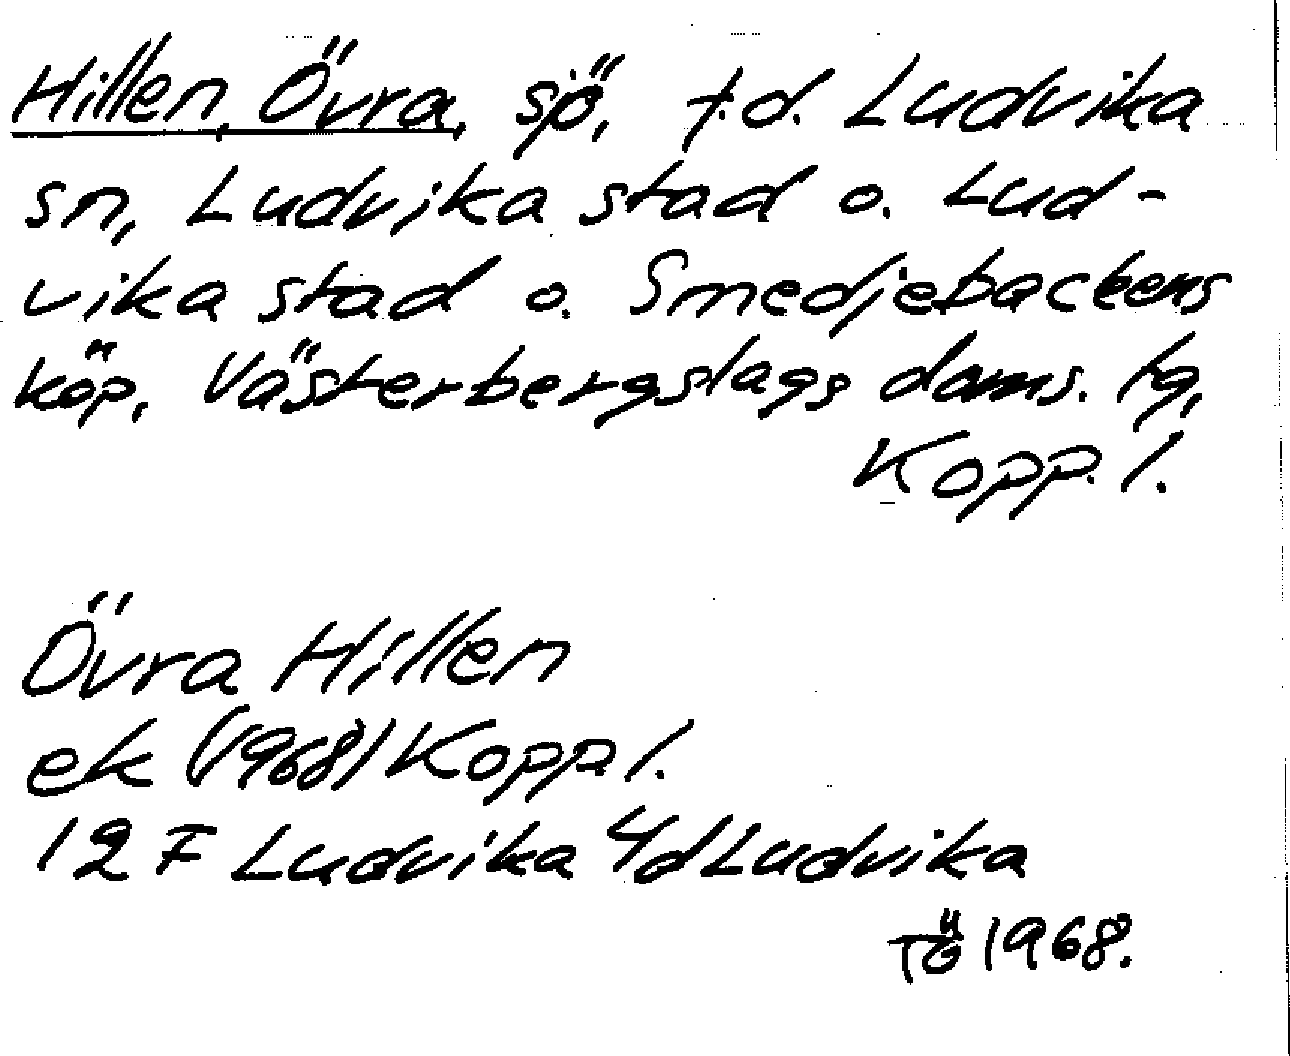 Hillen, Övra, sjö, f.d. Ludvika
sn, Ludvika stad o. Lud-
vika stad o. Smedjebackens
köp, Västerbergslags doms. tg,
Kopp. l.
Övra Hillen
ek (1968) Kopp. l.
12 F Ludvika 4d Ludvika
TÖ 1968.